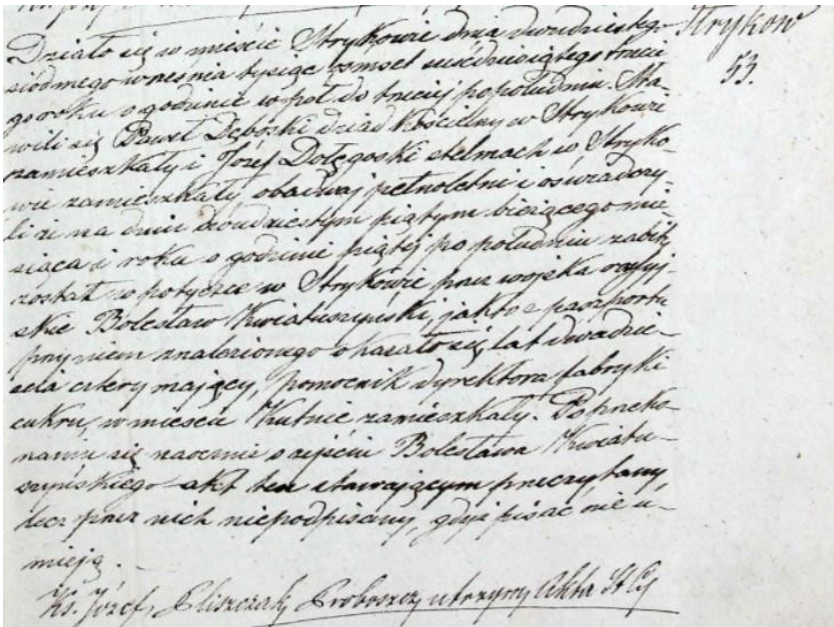 Stryków
53.
Działo się w mieście Strykowie dnia dwudziestego
siódmego września tysiąc ośmset sześćdziesiątego trzeci
go roku o godzinie wpół do trzeciej popołudniu. Sta-
wili się Paweł Dęboski dziad kościelny w Strykowie
zamieszkały i Józef Dołęgoski stelmach w Stryko-
wie zamieszkały obadwaj pełnoletni i oświadczy-
li że na dniu dwudziestym piątym bieżącego mie-
siąca i roku o godzinie piątej po południu zabity
został w potyczce w Strykowie przez wojska rossyj-
skie Bolesław Kwiatuszyński, jak to z paszportu
przy niem znalezionego okazało się, lat dwadzie-
ścia cztery mający, pomocnik dyrektora fabryki
cukru, w mieście Kutnie zamieszkały. Po przeko-
naniu się naocznie o zejściu Bolesława Kwiatu-
szyńskiego akt ten stawającym przeczytany,
lecz przez nich niepodpisany, gdyż pisać nie u-
mieją.
Ks. Józef Pliszczak Proboszcz utrzymy Akta St Cy